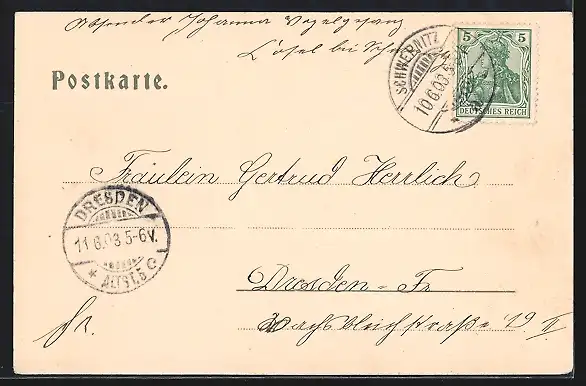 Absender Johanna Vogelgesang
Lösel bei
Postkarte.
SCHWEPNITZ
10.6.03
5 5
DEUTSCHES REICH
Fräulein Gertrud Herrlich
DRESDEN
11.6.03.5-6V.
* ALTST.5 c
Dresden-Fr
Wachsbleichstraße 19 II